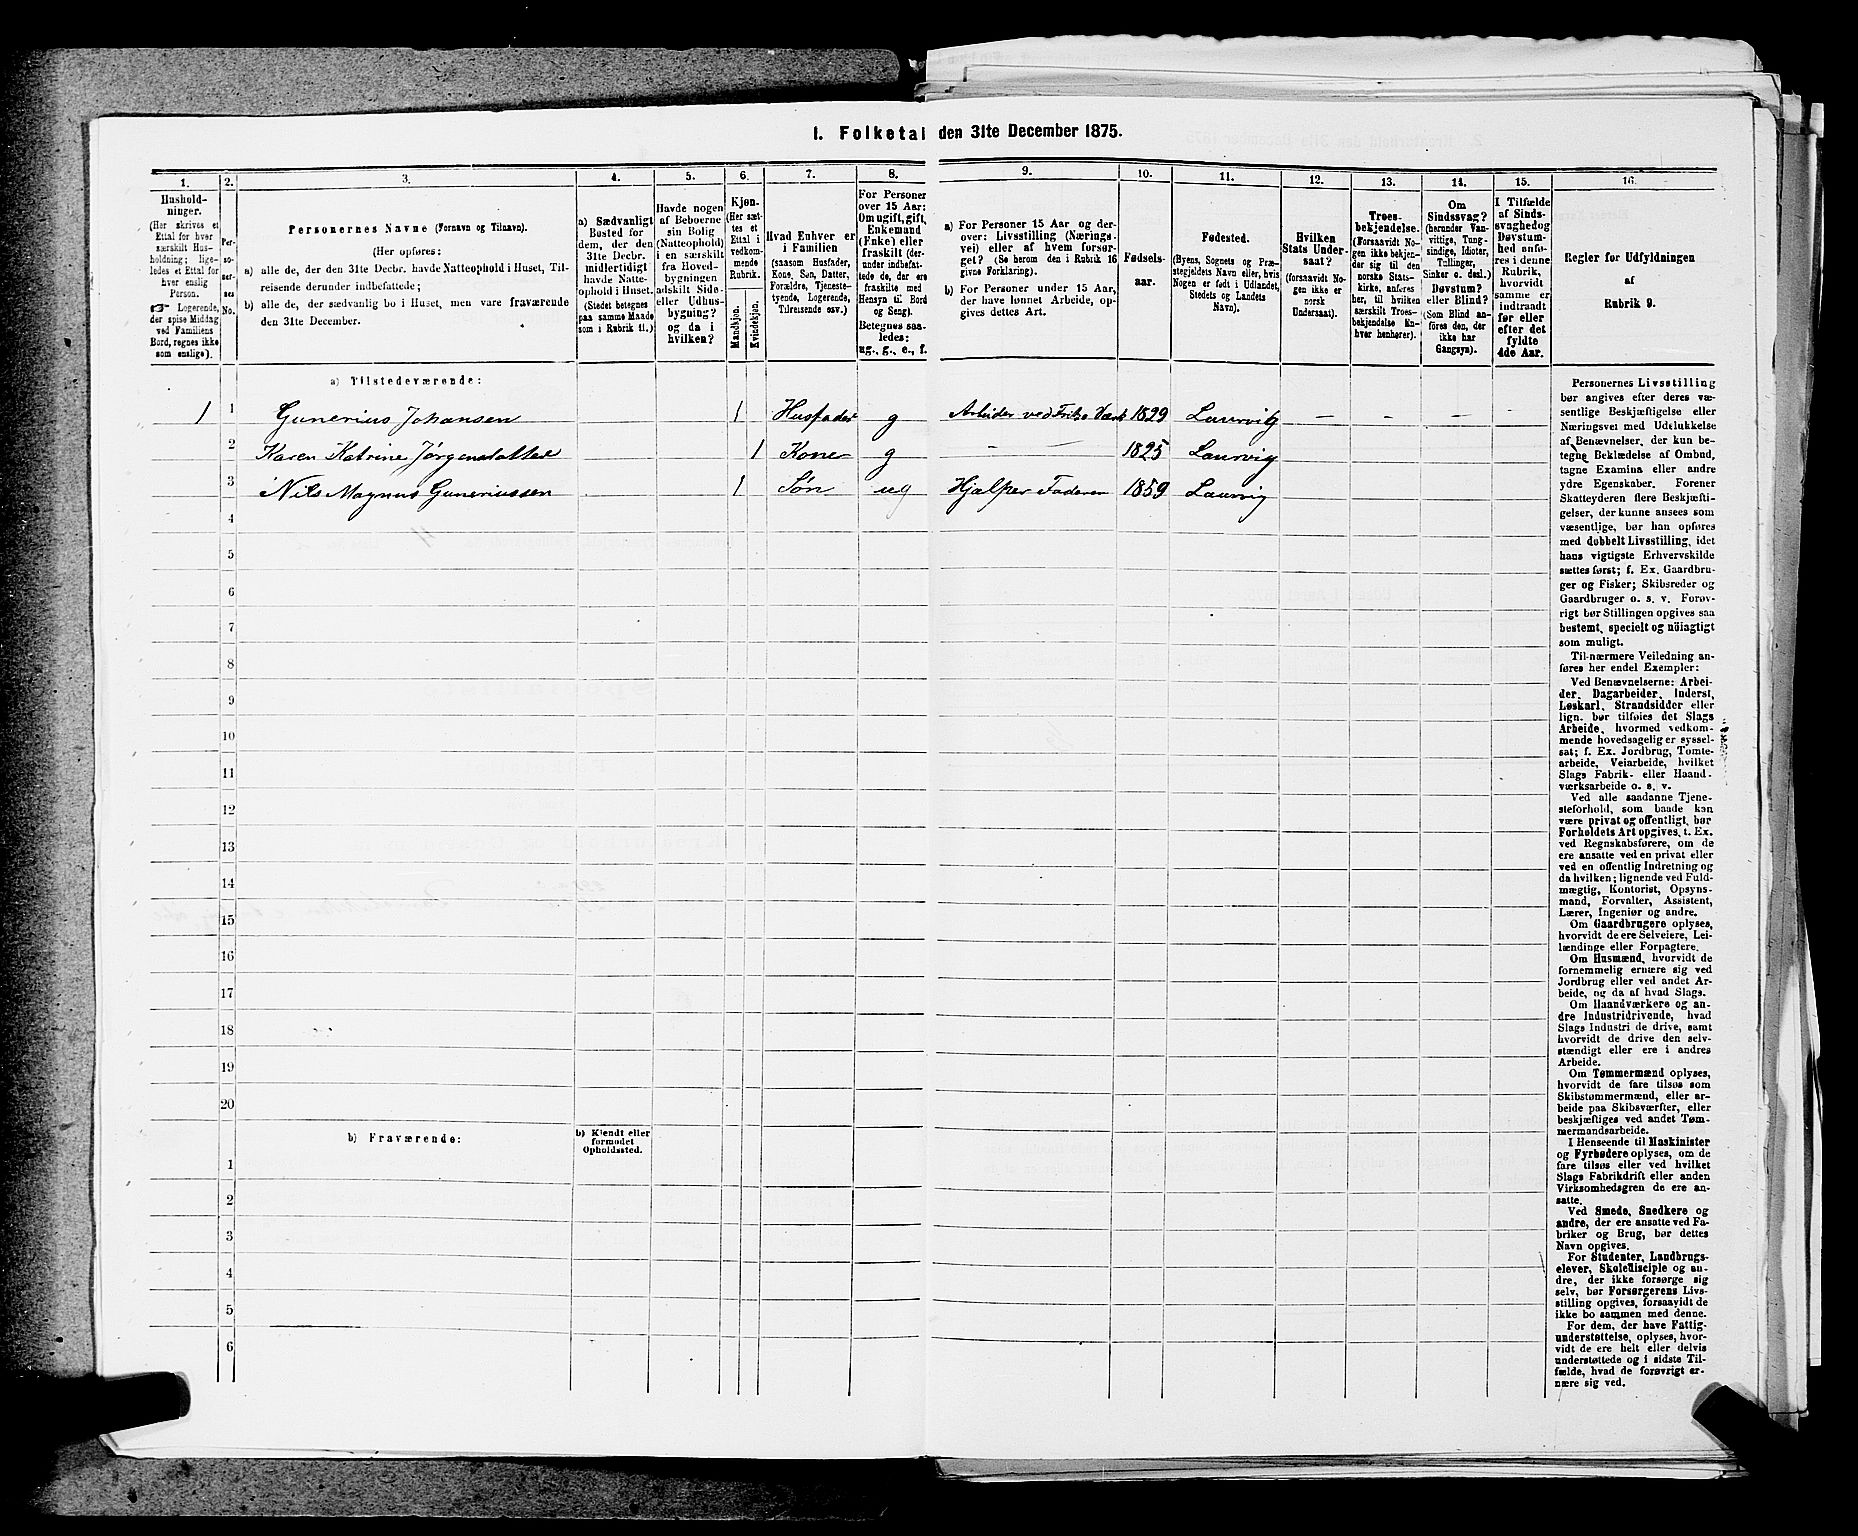 1. Folketal den 31te December 1875.
1.
2.
3.
4.
5.
6.
7.
8.
9.
10.
11.
12.
13.
14.
15.
16.
Hushold-
ninger.
(Her skrives et
Ettal for hver
særskilt Hus-
holdning; lige-
ledes et Ettal for
hver enslig
Person.
☞ Logerende,
der spise Middag
ved Familiens
Bord, regnes ikke
som enslige).
Per-
so-
ner-
nes
No.
Personernes Navne (Fornavn og Tilnavn).
(Her opføres:
a) alle de, der den 31te Decbr. havde Natteophold i Huset, Til-
reisende derunder indbefattede;
b) alle de, der sædvanlig bo i Huset, men vare fraværende
den 31te December.
a) Sædvanligt
Bosted for
dem, der den
31te Decbr.
midlertidigt
havde Natte-
ophold i Huset.
(Stedet betegnes
paa samme Maade
som i Rubrik 11.)
Havde nogen
af Beboerne
sin Bolig
(Natteophold)
i en særskilt
fra Hoved-
bygningen
adskilt Side-
eller Udhus-
bygning?
og da i
hvilken?
Kjøn.
(Her sæt-
tes et
Ettal i
vedkom-
mende
Rubrik.
Mandkjøn.
Kvindekjøn.
Hvad Enhver er
i Familien
(saasom Husfader,
Kone, Søn, Datter,
Forældre, Tjeneste-
tyende, Logerende,
Tilreisende osv.)
For Personer
over 15 Aar:
Om ugift, gift,
Enkemand
(Enke) eller
fraskilt (der-
under indbefat-
tede de, der ere
fraskilte med
Hensyn til Bord
og Seng).
Betegnes saa-
ledes:
ug., g., e., f.
a) For Personer 15 Aar og der-
over: Livsstilling (Nærings-
vei) eller af hvem forsør-
get? (Se herom den i Rubrik 16
givne Forklaring).
b) For Personer under 15 Aar,
der have lønnet Arbeide, op-
gives dettes Art.
Fødsels-
aar.
Fødested.
(Byens, Sognets og Præ-
stegjeldets Navn eller, hvis
Nogen er født i Udlandet,
Stedets og Landets
Navn).
Hvilken
Stats Under-
saat?
(forsaavidt No-
gen ikke er
norsk
Undersaat).
Troes-
bekjendelse.
(Forsaavidt No-
gen ikke bekjen-
der sig til den
norske Stats-
kirke, anføres
her, til hvilken
særskilt Troes-
bekjendelse En-
hver henhører).
Om
Sindssvag?
(herunder Van-
vittige, Tung-
sindige, Idioter,
Tullinger,
Sinker o. desl.)
Døvstum?
eller Blind?
(Som Blind an-
føres den, der
ikke har
Gangsyn).
I Tilfælde
af Sinds-
svaghed og
Døvstum-
hed anfø-
res i denne
Rubrik,
hvorvidt
samme er
indtraadt
før eller
efter det
fyldte
4de Aar.
Regler for Udfyldningen
af
Rubrik 9.
a) Tilstedeværende:
1 1 Gunerius Johansen 1 Husfader g Arbeider ved Fritzø Værk 1829 Laurvig — — — —
2 Karen Katrine Jørgensdatter 1 Kone g — — 1825 Laurvig
3 Nils Magnus Guneriussen 1 Søn ug Hjælper Faderen 1859 Laurvig
4
5
6
7
8
9
10
11
12
13
14
15
16
17
18
19
20
b) Fraværende:
b) Kjendt eller
formodet
Opholdssted.
1
2
3
4
5
6
Personernes Livsstilling
bør angives efter deres væ-
sentlige Beskjæftigelse eller
Næringsvei med Udelukkelse
af Benævnelser, der kun be-
tegne Beklædelse af Ombud,
tagne Examina eller andre
ydre Egenskaber. Forener
Skatteyderen flere Beskjæfti-
gelser, der kunne ansees som
væsentlige, bør han opføres
med dobbelt Livsstilling, idet
hans vigtigste Erhvervskilde
sættes først; f. Ex. Gaardbru-
ger og Fisker; Skibsreder og
Gaardbruger o. s. v. Forøv-
rigt bør Stillingen opgives saa
bestemt, specielt og nøiagtigt
som muligt.
Til nærmere Veiledning an-
føres her endel Exempler:
Ved Benævnelserne: Arbei-
der, Dagarbeider, Inderst,
Løskarl, Strandsidder eller
lign. bør tilføies det Slags
Arbeide, hvormed vedkom-
mende hovedsagelig er syssel-
sat; f. Ex. Jordbrug, Tomte-
arbeide, Veiarbeide, hvilket
Slags Fabrik- eller Haand-
værksarbeide o. s. v.
Ved alle saadanne Tjene-
steforhold, som baade kan
være privat og offentligt, bør
Forholdets Art opgives, f. Ex.
ved Regnskabsførere, om de
ere ansatte ved en privat eller
ved en offentlig Indretning og
da hvilken; lignende ved Fuld-
mægtig, Kontorist, Opsyns-
mand, Forvalter, Assistent,
Lærer, Ingeniør og andre.
Om Gaardbrugere oplyses,
hvorvidt de ere Selveiere, Lei-
lændinge eller Forpagtere.
Om Husmænd, hvorvidt de
fornemmelig ernære sig ved
Jordbrug eller ved andet Ar-
beide, og da af hvad Slags.
Om Haandværkere og an-
dre Industridrivende, hvad
Slags Industri de drive, samt
hvorvidt de drive den selv-
stændigt eller ere i andres
Arbeide.
Om Tømmermænd oplyses,
hvorvidt de fare tilsøs som
Skibstømmermænd, eller ar-
beide paa Skibsværfter, eller
beskjæftiges ved andet Tøm-
mermandsarbeide.
I Henseende til Maskinister
og Fyrbødere oplyses, om de
fare tilsøs eller ved hvilket
Slags Fabrikdrift eller anden
Virksomhedsgren de ere an-
satte.
Ved Smede, Snedkere og
andre, der ere ansatte ved Fa-
briker og Brug, bør dettes
Navn opgives.
For Studenter, Landbrugs-
elever, Skoledisciple og an-
dre, der ikke forsørge sig
selv, bør Forsørgerens Livs-
stilling opgives, forsaavidt de
ikke bo sammen med denne.
For dem, der have Fattig-
understøttelse, oplyses, hvor-
vidt de ere helt eller delvis
understøttede og i sidste Til-
fælde, hvad de forøvrigt er-
nære sig ved.